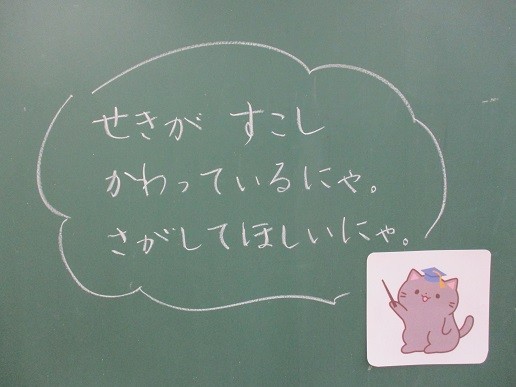 せきが すこし
かわっているにゃ。
さがしてほしいにゃ。